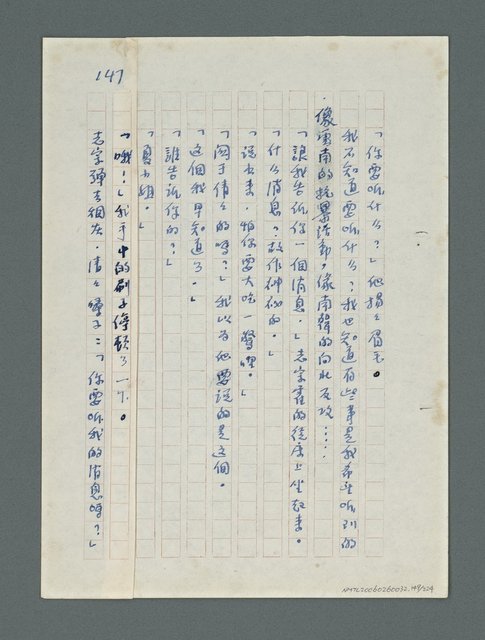 147
「你要听什么？」他揚揚眉毛。
我不知道要听什么？我也知道有些事是我希望听到的
，像雲南的抗暴活動，像南韓的向北反攻……
「讓我告訴你一個消息。」志字霍的從床上坐起来。
「什么消息？故作神秘的。」
「說出来，怕你要大吃一驚哩。」
「関于倩々的嗎？」我以为他要說的是这個。
「这個我早知道了。」
「誰告訴你的？」
「夏大姐。」
「哦！」我手中的刷子停頓了一下。
志字彈去烟灰，清清嗓子：「你要听我的消息嗎？」
NMTL20060260032.149/324